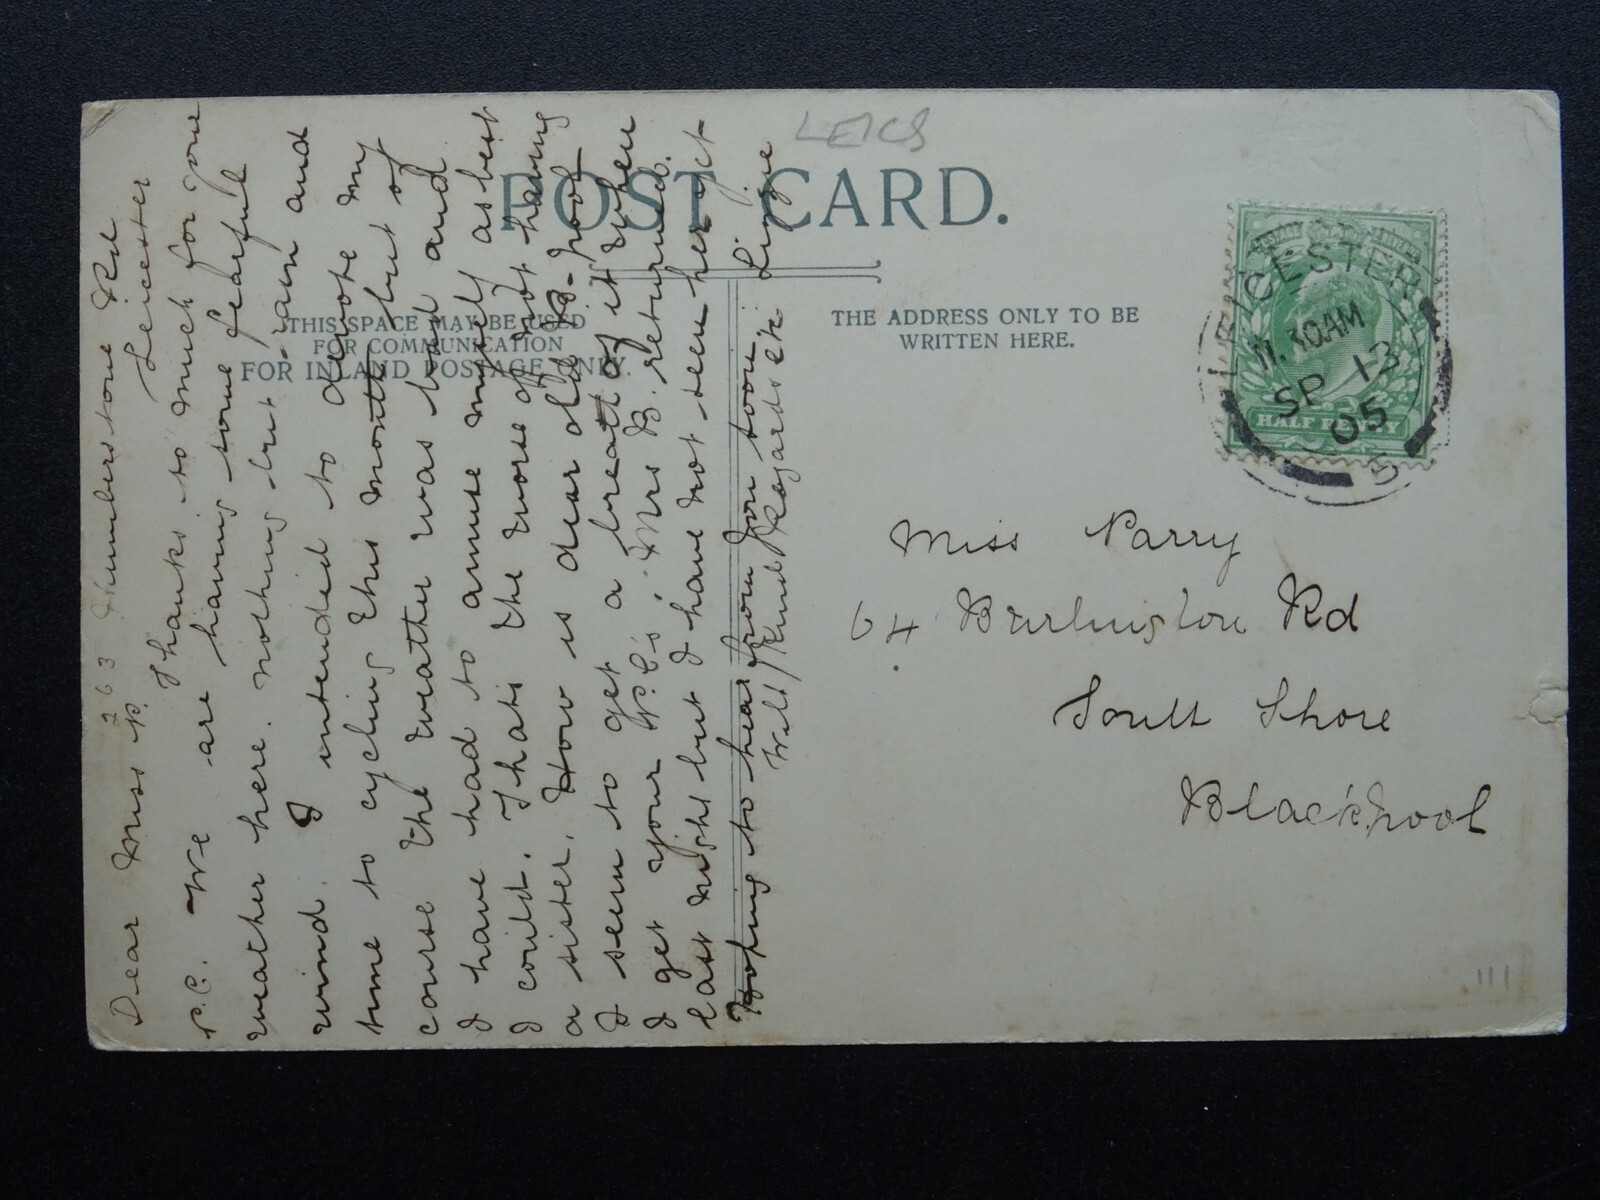 LEICS
POST CARD.
THIS SPACE MAY BE USED
FOR COMMUNICATION
FOR INLAND POSTAGE ONLY.
THE ADDRESS ONLY TO BE
WRITTEN HERE.
LEICESTER
11.30AM
SP 13
05
5
HALF PENNY
Miss Parry
64 Burlington Rd
South Shore
Blackpool
263 Humberstone Rd
Leicester
Dear Miss P.
Thanks to much for your
P.C. We are having some fearful
weather here. nothing but rain and
wind. I intended to devote my
time to cycling this month but of
course the weather was bad and
I have had to amuse myself as best
I could. Thats the worse of not having
a sister. How is dear old B-pool
I seem to get a breath of it when
I get your P.C's. Mrs B. returned.
last night but I have not seen her yet
Hoping to hear from you soon
With Kind Regards etc Lizzie
111